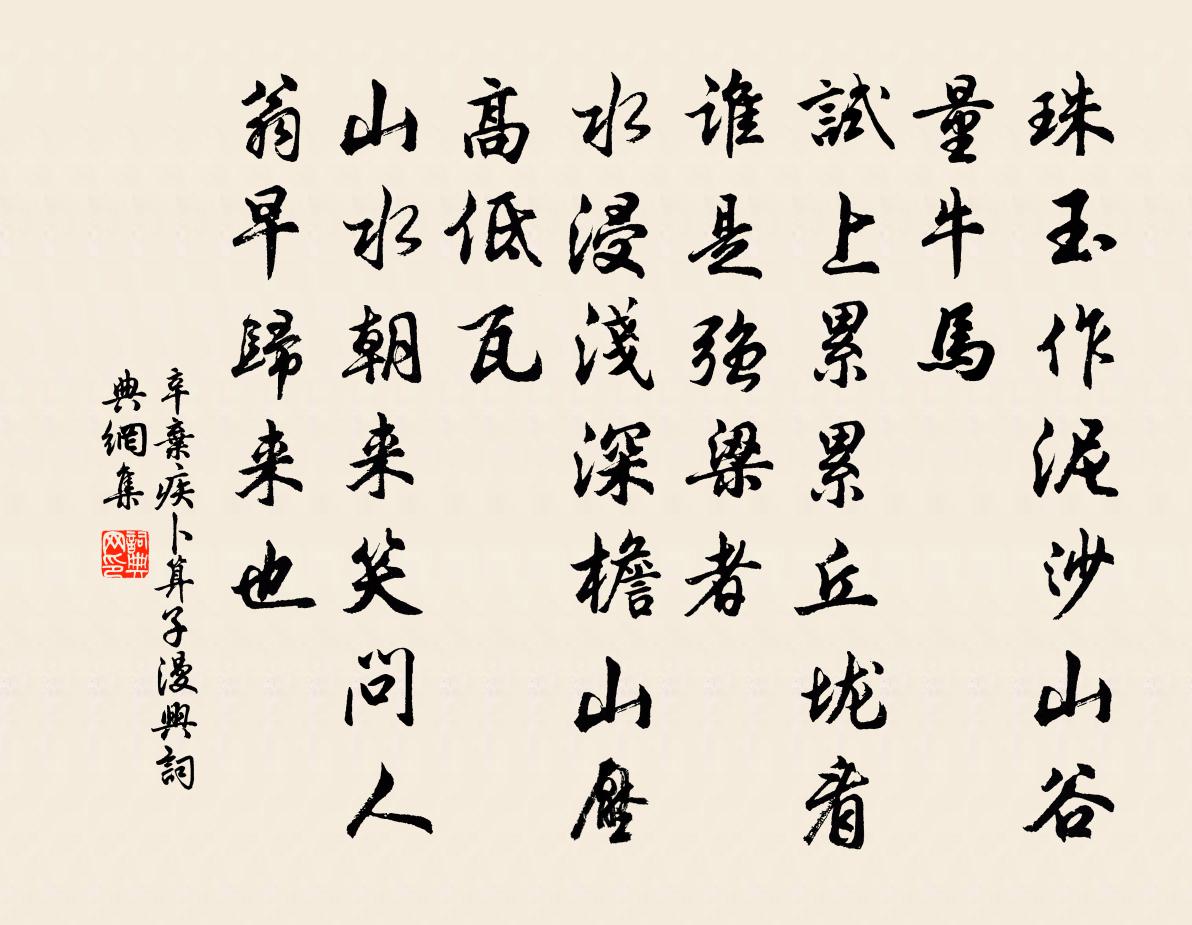 珠玉作泥沙山谷
量牛馬
試上累累丘垅看
谁是强梁者
水浸淺深檐山壓
高低瓦
山水朝来笑问人
翁早歸来也
辛棄疾卜算子漫興詞
典網集
詞典
网印